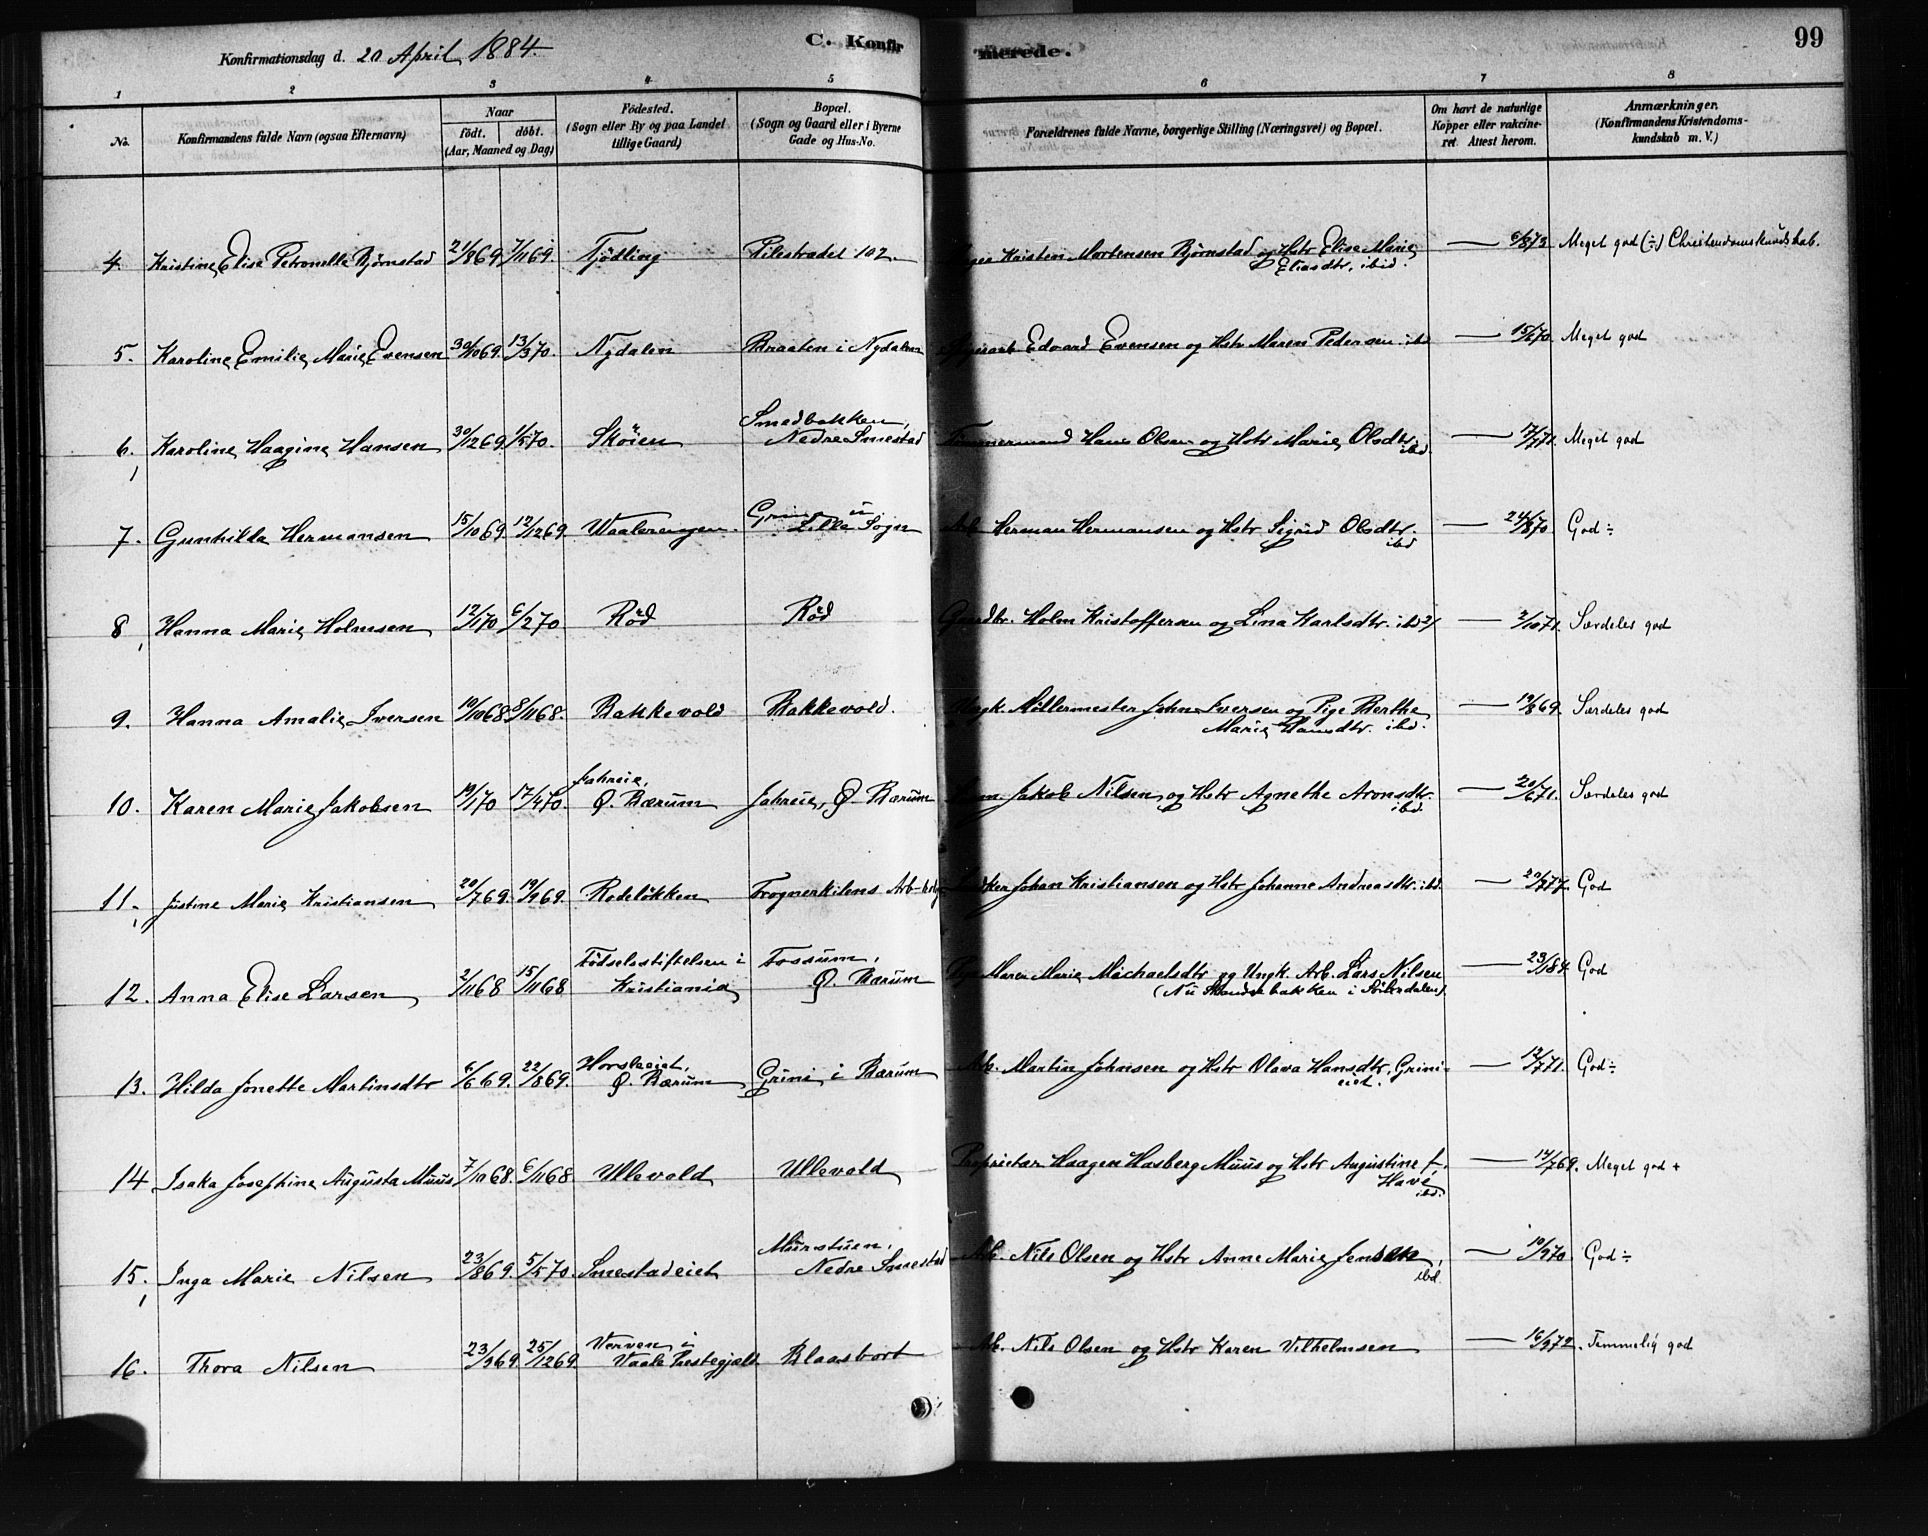 Konfirmationsdag d. 20 April 1884.
C. Konfirmerede.
99
1 2 3 4 5 6 7 8
No.
Konfirmandens fulde Navn (ogsaa Efternavn)
Naar
födt. döbt.
(Aar, Maaned og Dag)
Födested.
(Sogn eller By og paa Landet
tillige Gaard)
Bopæl.
(Sogn og Gaard eller i Byerne
Gade og Hus-No.
Forældrenes fulde Navne, borgerlige Stilling (Næringsvei) og Bopæl.
Om havt de naturlige
Kopper eller vakcine-
ret. Attest herom.
Anmærkninger.
(Konfirmandens Kristendoms-
kundskab m. V.)
4. Kristine Elise Petronelle Björnstad 21/869 7/1169. Tjödling Pilestradet 102. Kristen Mortensen Björnstad og Hstr Elise Marie
Eliasdtr. ibid. — 6/873 Meget god (÷) Christendomskundskab.
5. Karoline Emilie Marie Evensen 30/1069. 13/370. Nydalen Braaten i Nydalen Edvard Evensen og Hstr Maren Pedersen ibd — 15/670. Meget god
6. Karoline Haagine Hansen 30/1269. 1/570. Sköien Smedbakken,
Nedre Smestad Tömmermand Hans Olsen og Hstr Marie Olsdtr.
ibd. — 17/771. Meget god
7. Gunhilda Hermansen 15/1069. 12/1269. Waalerengen. Lille Sogn Arb. Herman Hermansen og Hstr Sigrid Olsdtr.
ibd — 24/870 God ÷
8. Hanna Marie Holmsen 12/170 6/270. Röd Röd Gaardbr. Holm Kristoffersen og Lina Karlsdtr. ibd — 2/1071. Særdeles god
9. Hanna Amalie Iversen 19/1068. 8/1168. Bakkevold Bakkevold. Ungk. Möllermester John Iversen og Pige Berthe
Marie Hansdtr. ibd. — 19/869. Særdeles god
10. Karen Marie Jakobsen 19/170 17/470. Jahreie,
Ö. Bærum Jahreie, Ö. Bærum Jakob Nilsen og Hstr Agnethe Aronsdtr.
ibd. — 20/671. Særdeles god
11. Justine Marie Kristiansen 20/769. 19/969. Rodelökken Frognerkilens Johan Kristiansen og Hstr Johanne Andreasdtr. ibd. — 20/777. God
12. Anna Elise Larsen 2/1168 15/1168 Födselsstiftelsen i
Kristiania Fossum,
Ö. Bærum Pige Maren Marie Michaelsdtr og Ungk. Arb. Lars Nilsen
— 23/184. God
13. Hilda Jonette Martinsdtr 6/669. 22/869. Horsleiet,
Ö. Bærum Grini i Bærum Arb. Martin Johnsen og Hstr Olava Hansdtr. Grini-
eiet. — 12/771. God ÷
14 Isaka Josephine Augusta Muus 7/1068. 6/1168 Ullevold Ullevold Proprietær Haagen Hasberg Muus og Hstr Augustine f.
Have
ibd. — 14/769. Meget god +
15. Inga Marie Nilsen 23/869. 5/570. Smestadeiet Murstuen,
Nedre Smestad Arb. Nils Olsen og Hstr Anne Marie Jensen,
ibd. — 10/970. God ÷
16. Thora Nilsen 23/969. 25/1269. Verven i
Vaale Prestegjæld Blaasbort Arb. Nils Olsen og Hstr Karen Vilhelmsen — 16/972. Temmelig god